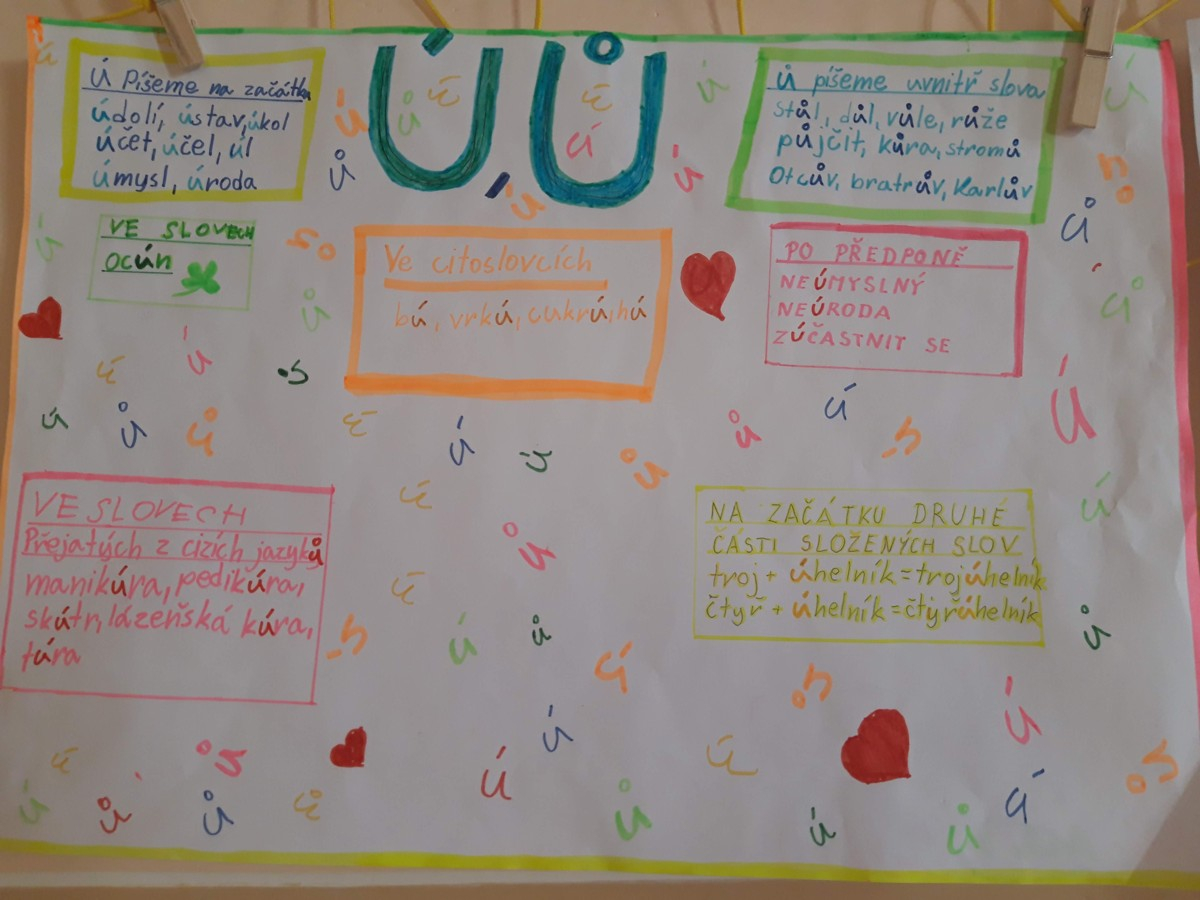 Ú, Ů
Ú Píšeme na začátku
údolí, ústav, úkol
účet, účel, úl
úmysl, úroda
Ů píšeme uvnitř slova
stůl, důl, vůle, růže
půjčit, kůra, stromů
Otcův, bratrův, Karlův
VE SLOVECH
OCÚN
Ve citoslovcích
bú, vrkú, cukrú, hú
PO PŘEDPONĚ
NEÚMYSLNÝ
NEÚRODA
ZÚČASTNIT SE
VE SLOVECH
Přejatých z cizích jazyků
manikúra, pedikúra,
skútr, lázeňská kúra,
túra
NA ZAČÁTKU DRUHÉ
ČÁSTI SLOŽENÝCH SLOV
troj + úhelník = trojúhelník
čtyř + úhelník = čtyřúhelník